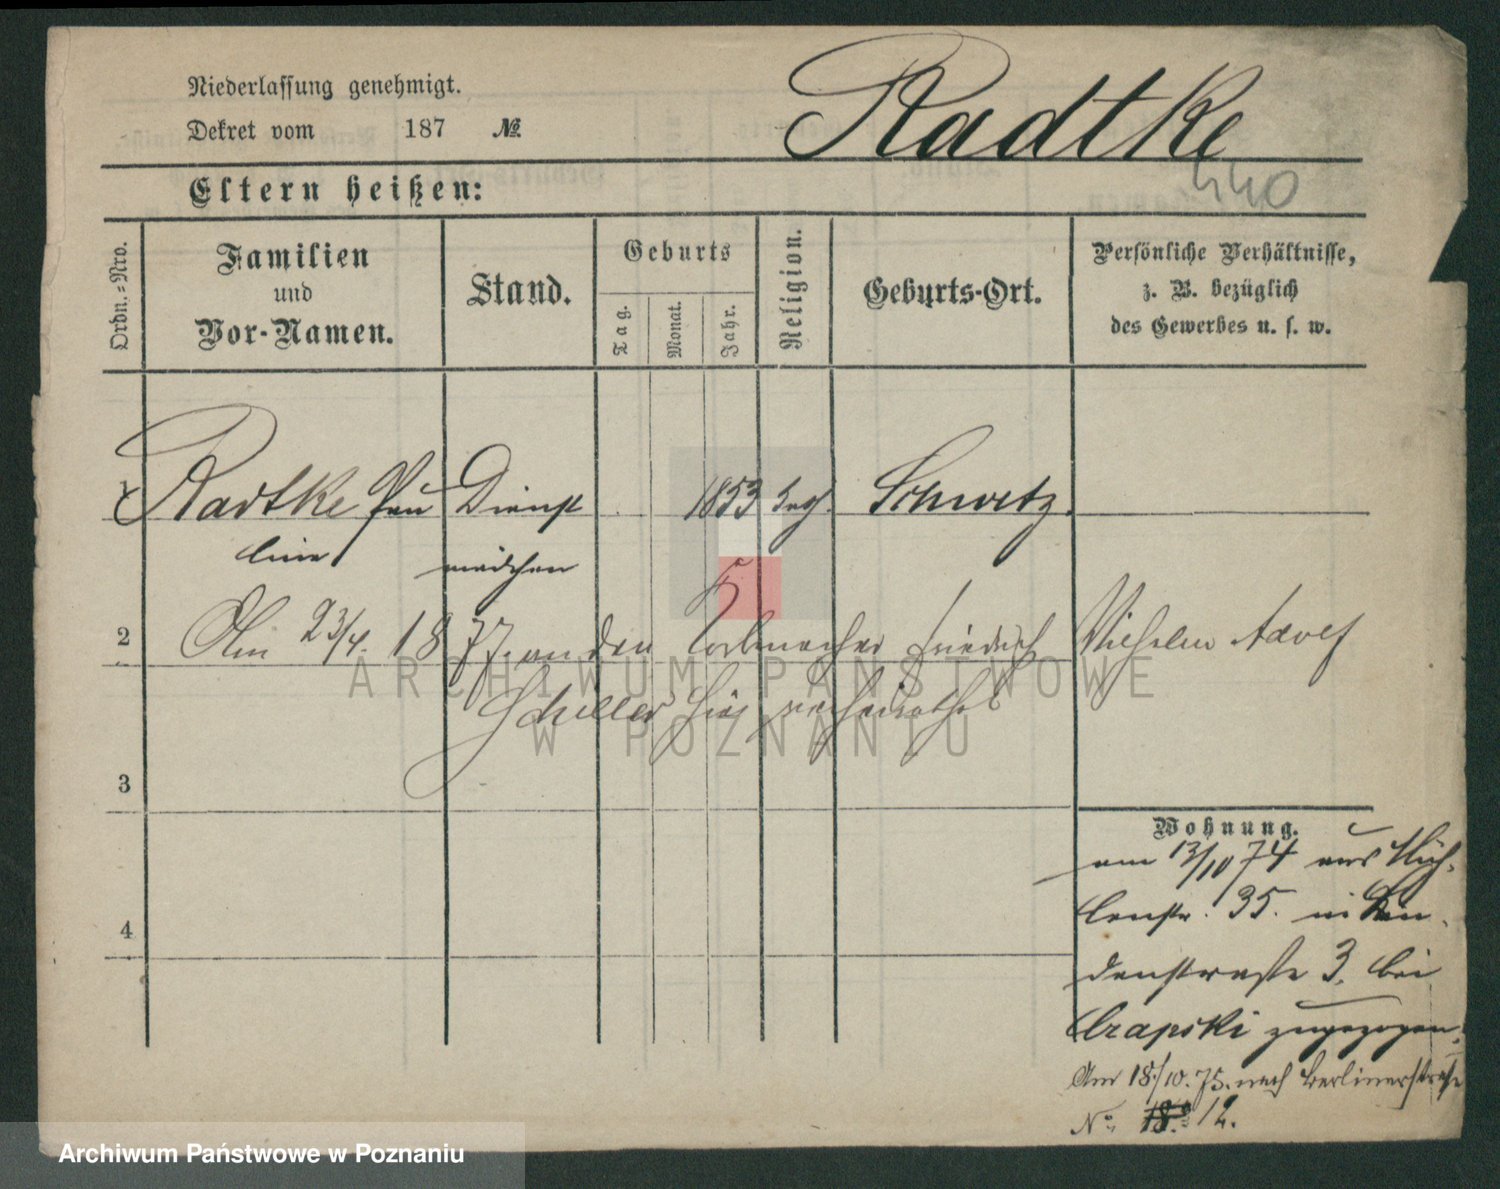 Niederlassung genehmigt.
Dekret vom 187 №
Radtke
440
Eltern heißen:
Ordn.=Nro.
Familien
und
Vor-Namen.
Stand.
Geburts
Tag.
Monat.
Jahr.
Religion.
Geburts-Ort.
Persönliche Verhältnisse,
z. B. bezüglich
des Gewerbes u. s. w.
1 Radtke Pau Dienst 1853 Schwetz
line mädchen
2 Am 23/4. 1877. an den Korbmacher Friedrich Wilhelm Adolf
Schiller hier verheirathet
3
4
Wohnung.
am 13/10 74 aus Müh-
lenstr. 35. in Lin-
denstraße 3. bei
Czapski zugezogen.
Am 18/10. 75. nach Berlinerstraße
No. 18. 12.
ARCHIWUM PAŃSTWOWE
W POZNANIU
Archiwum Państwowe w Poznaniu